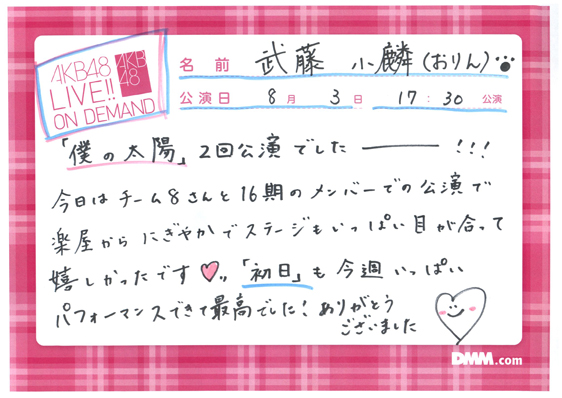 AKB48
LIVE!!
ON DEMAND
AKB
48
名前 武藤 小麟(おりん)
公演日 8月 3日 17:30 公演
「僕の太陽」2回公演でした――!!!
今日はチーム8さんと16期のメンバーでの公演で
楽屋からにぎやかでステージもいっぱい目が合って
嬉しかったです♡〟「初日」も今週いっぱい
パフォーマンスできて最高でした!ありがとう
ございました
DMM.com